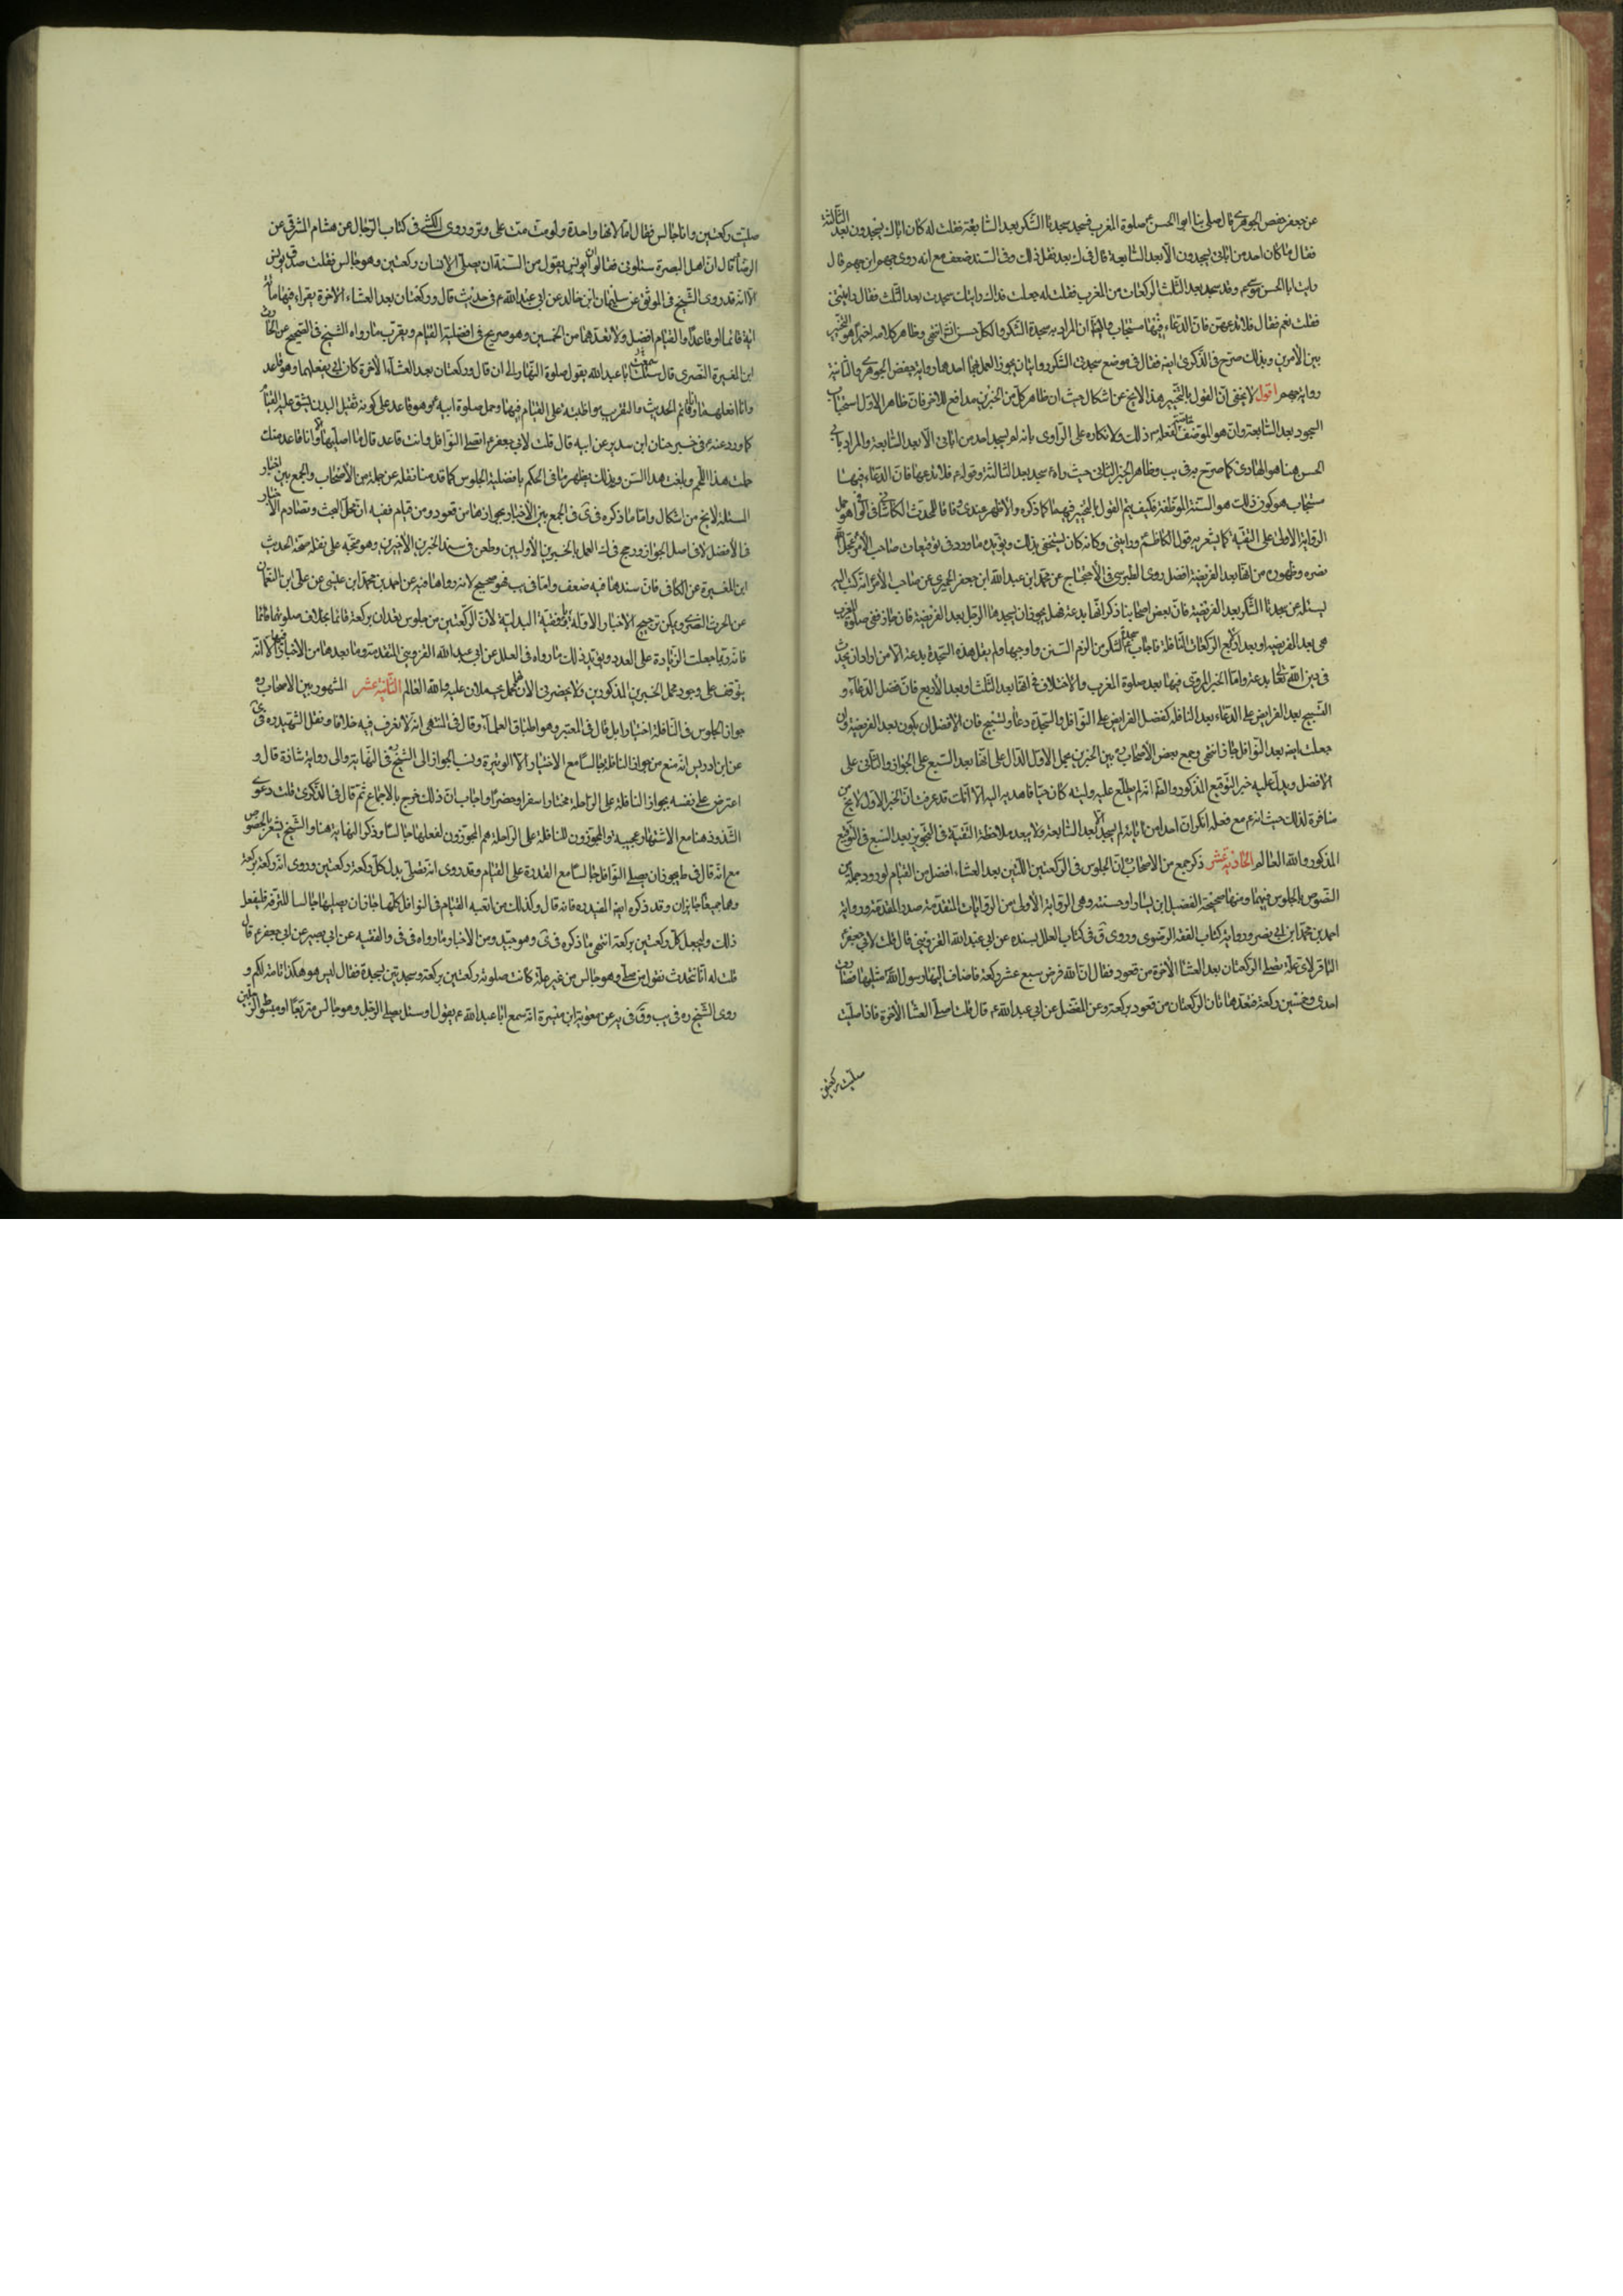 عن جعفر حفص الجوهري قال صلى بنا ابو الحسن ع صلوة المغرب فسجد سجدة الشكر بعد السابعة فقلت له كان اباؤك يسجدون بعد الثالثة
فقال ما كان احد من ابائي يسجدون الا بعد السابعة قال في ك بعد نقل ذلك وفي السند ضعف مع انه روى جهم ابن جهم قال
رايت ابا الحسن موسى ع وقد سجد بعد الثلث الركعات من المغرب فقلت له جعلت فداك رايتك سجدت بعد الثلث فقال ورايتني
فقلت نعم فقال فلا تدعهن فان الدعاء فيها مستجاب والظ ان المراد به سجدة الشكر والكل حسن انتهى وظاهر كلامه اخيرا هو التخيير
بين الامرين وبذلك صرح في الذكرى ايضا فقال في موضع سجدتي الشكر روايتان يجوز العمل بهما احدهما رواية حفص الجوهري والثانية
رواية جهم اقول لا يخفى ان القول بالتخيير هذا لا يخ عن اشكال حيث ان ظاهر كل من الخبرين مدافع للاخر فان ظاهر الاول استحباب
السجود بعد السابعة وان هو الموظف بفعله ع ذلك وانكاره على الراوي بانه لم يسجد احد من ابائي الا بعد السابعة والمراد بابي
الحسن هنا هو الهادي كما صرح به في يب وظاهر الخبر الثاني حيث راه ع سجد بعد الثالثة وقوله ع فلا تدعها فان الدعاء فيها
مستجاب هو كون ذلك هو السنة الموظفة فكيف يتم القول بالتخيير فيهما كما ذكره والاظهر عندي وفاقا للمحدث الكاشاني في الوافي هو حمل
الرواية الاولى على التقية كما يشعر به قول الكاظم ع ورايتني وكانه كان يستخفي بذلك ويؤيده ما ورد في توقيعات صاحب الامر عجل الله
نصره وظهوره من انها بعد الفريضة افضل روى الطبرسي في الاحتجاج عن محمد ابن عبد الله ابن جعفر الحميري عن صاحب الامر ع انه كتب اليه
يسئله عن سجدة الشكر بعد الفريضة فان بعض اصحابنا ذكر انها بدعة فهل يجوز ان يسجدها الرجل بعد الفريضة فان جاز ففي صلوة المغرب
هي بعد الفريضة او بعد الاربع الركعات النافلة فاجاب ع سجدة الشكر من الزم السنن واوجبها ولم يقل هذه السجدة بدعة الا من اراد ان يحدث
في دين الله تعالى بدعة واما الخبر المروي فيها بعد صلوة المغرب والاختلاف في انها بعد الثلث او بعد الاربع فان فضل الدعاء و
التسبيح بعد الفرايض على الدعاء بعد النافله كفضل الفرايض على النوافل والسجدة دعاء وتسبيح فان الافضل ان يكون بعد الفريضة وان
جعلت ايضا بعد النوافل جاز انتهى وجمع بعض الاصحاب بين الخبرين بحمل الاول الدال على انها بعد السبع على الجواز والثاني على
الافضل ويدل عليه خبر التوقيع المذكور والظ انه لم يطلع عليه وليته كان حيا فاهديه اليه الا انك قد عرفت ان الخبر الاول لا يخ من
منافرة لذلك حيث انه ع مع فعله انكر ان احدا من ابائه لم يسجد الا بعد السابعة ولا يبعد ملاحظة التقية في التجويز بعد السبع في التوقيع
المذكور والله العالم الحادية عشر ذكر جمع من الاصحاب ان الجلوس في الركعتين اللتين بعد العشاء افضل من القيام لورود جملة من
النصوص بالجلوس فيهما ومنها صحيحة الفضيل ابن يسار او حسنته وهي الرواية الاولى من الروايات المتقدمة صدر المقدمة ورواية
احمد بن محمد ابن ابي نصر ورواية كتاب الفقه الرضوي وروى ق في كتاب العلل بسنده عن ابي عبد الله القزويني قال قلت لابي جعفر
الباقر لاي علة تصلى الركعتان بعد العشاء الاخرة من قعود فقال ان الله فرض سبع عشر ركعة فاضاف اليها رسول الله مثليها فصارت
احدى وخمسين ركعة فتعد هاتان الركعتان من قعود بركعة وعن المفضل عن ابي عبد الله ع قال قلت اصلى العشاء الاخرة فاذا صليت
صليت ركعتين
صليت ركعتين وانا جالس فقال اما انها واحدة ولو مت مت على وتر وروى الكشي في كتاب الرجال عن هشام المشرقي عن
الرضا ع قال ان اهل البصرة سئلوني فقالوا ان يونس يقول من السنة ان يصلي الانسان ركعتين وهو جالس فقلت صدق يونس
الا انه قد روى الشيخ في الموثق عن سليمان ابن خالد عن ابي عبد الله ع في حديث قال وركعتان بعد العشاء الاخرة يقراء فيهما مائة
اية قائما او قاعدا والقيام افضل ولا تعدهما من الخمسين وهو صريح في افضلية القيام ويقرب منا رواه الشيخ في الصحيح عن الحارث
ابن المغيرة النصري قال سمعت ابا عبد الله يقول صلوة النهار الى ان قال وركعتان بعد العشاء الاخرة كان ابي يصليهما وهو قاعد
وانا اصليهما وانا قائم الحديث والتقريب مواظبته على القيام فيهما وحمل صلوة ابيه ع وهو قاعد على كونه ثقيل البدن يشق عليه القيام
كما ورد عنه ع في خبر حنان ابن سدير عن ابيه قال قلت لابي جعفر ع اتصلي النوافل وانت قاعد قال ما اصليها الا وانا قاعد منذ
حملت هذا اللحم وبلغت هذا السن وبذلك يظهر ما في الحكم بافضلية الجلوس كما قدمنا نقله عن جملة من الاصحاب والجمع بين اخبار
المسئلة لا يخ من اشكال واما ما ذكره في ك في الجمع بين الاخبار بجوازهما من قعود ومن قيام ففيه ان محل البحث وتصادم الاخبار
في الافضل لا في اصل الجواز ورجح في الذ العمل بالخبرين الاوليين وطعن في سند الخبرين الاخيرين وهو متجه على نقله صحة الحديث
ابن المغيرة عن الكافي فان سندها فيه ضعف واما في يب فهو صحيح لانه رواها فيه عن احمد بن محمد ابن عيسى عن علي ابن النعمان
عن الحرث النصري ويمكن ترجيح الاخبار الاولة بوفقية البدلية لان الركعتين من جلوس تعدان بركعة قائما بخلاف صلوتهما قائما
فانه ربما جعلت الزيادة على العدد ويؤيد ذلك ما رواه في العلل عن ابي عبد الله القزويني المتقدمة وما بعدها من الاخبار الا انه
يتوقف على وجود محمل الخبرين المذكورين ولا يحضرني الان محمل يحملان عليه والله العالم الثانية عشر المشهور بين الاصحاب ره
جواز الجلوس في النافلة اختيارا بل قال في المعتبر وهو اطباق العلماء وقال في المنتهى انه لا نعرف فيه خلافا ونقل الشهيد ره في
عن ابن ادريس انه منع من جواز النافلة جالسا مع الاختيار الا الوتيرة ونسب الجواز الى الشيخ في النهاية والى رواية شاذة قال و
اعترض على نفسه بجواز النافلة على الراحلة مختارا سفرا وحضرا واجاب بان ذلك خرج بالاجماع ثم قال في الذكرى قلت دعوى
الشذوذ هنا مع الاشتهار عجيبة والمجوزون للنافلة على الراحلة هم المجوزون لفعلها جالسا وذكر النهاية هنا والشيخ يشعر بالخصوص
مع انه قال في ط يجوز ان يصلي النوافل جالسا مع القدرة على القيام وقد روى انه يصلي بدل كل ركعة ركعتين وروى انه ركعة بركعة
وهما جميعا جايزان وقد ذكره ايضا المفيد ره فانه قال وكذلك من اتعبه القيام في النوافل كلها جاز ان يصليها جالسا للترفه فليفعل
ذلك وليجعل كل ركعتين بركعة انتهى ما ذكره في ى وهو جيد ومن الاخبار ما رواه في في والفقيه عن ابي بصير عن ابي جعفر ع قال
قلت له انا نتحدث نقول من صلى وهو جالس من غير علة كانت صلوته ركعتين بركعة وسجدتين بسجدة فقال ليس هو هكذا تامة لكم و
روى الشيخ ره في يب وق في يه عن معوية ابن ميسرة انه سمع ابا عبد الله ع يقول او سئل يصلي الرجل وهو جالس متربعا او مبسوط الرجلين